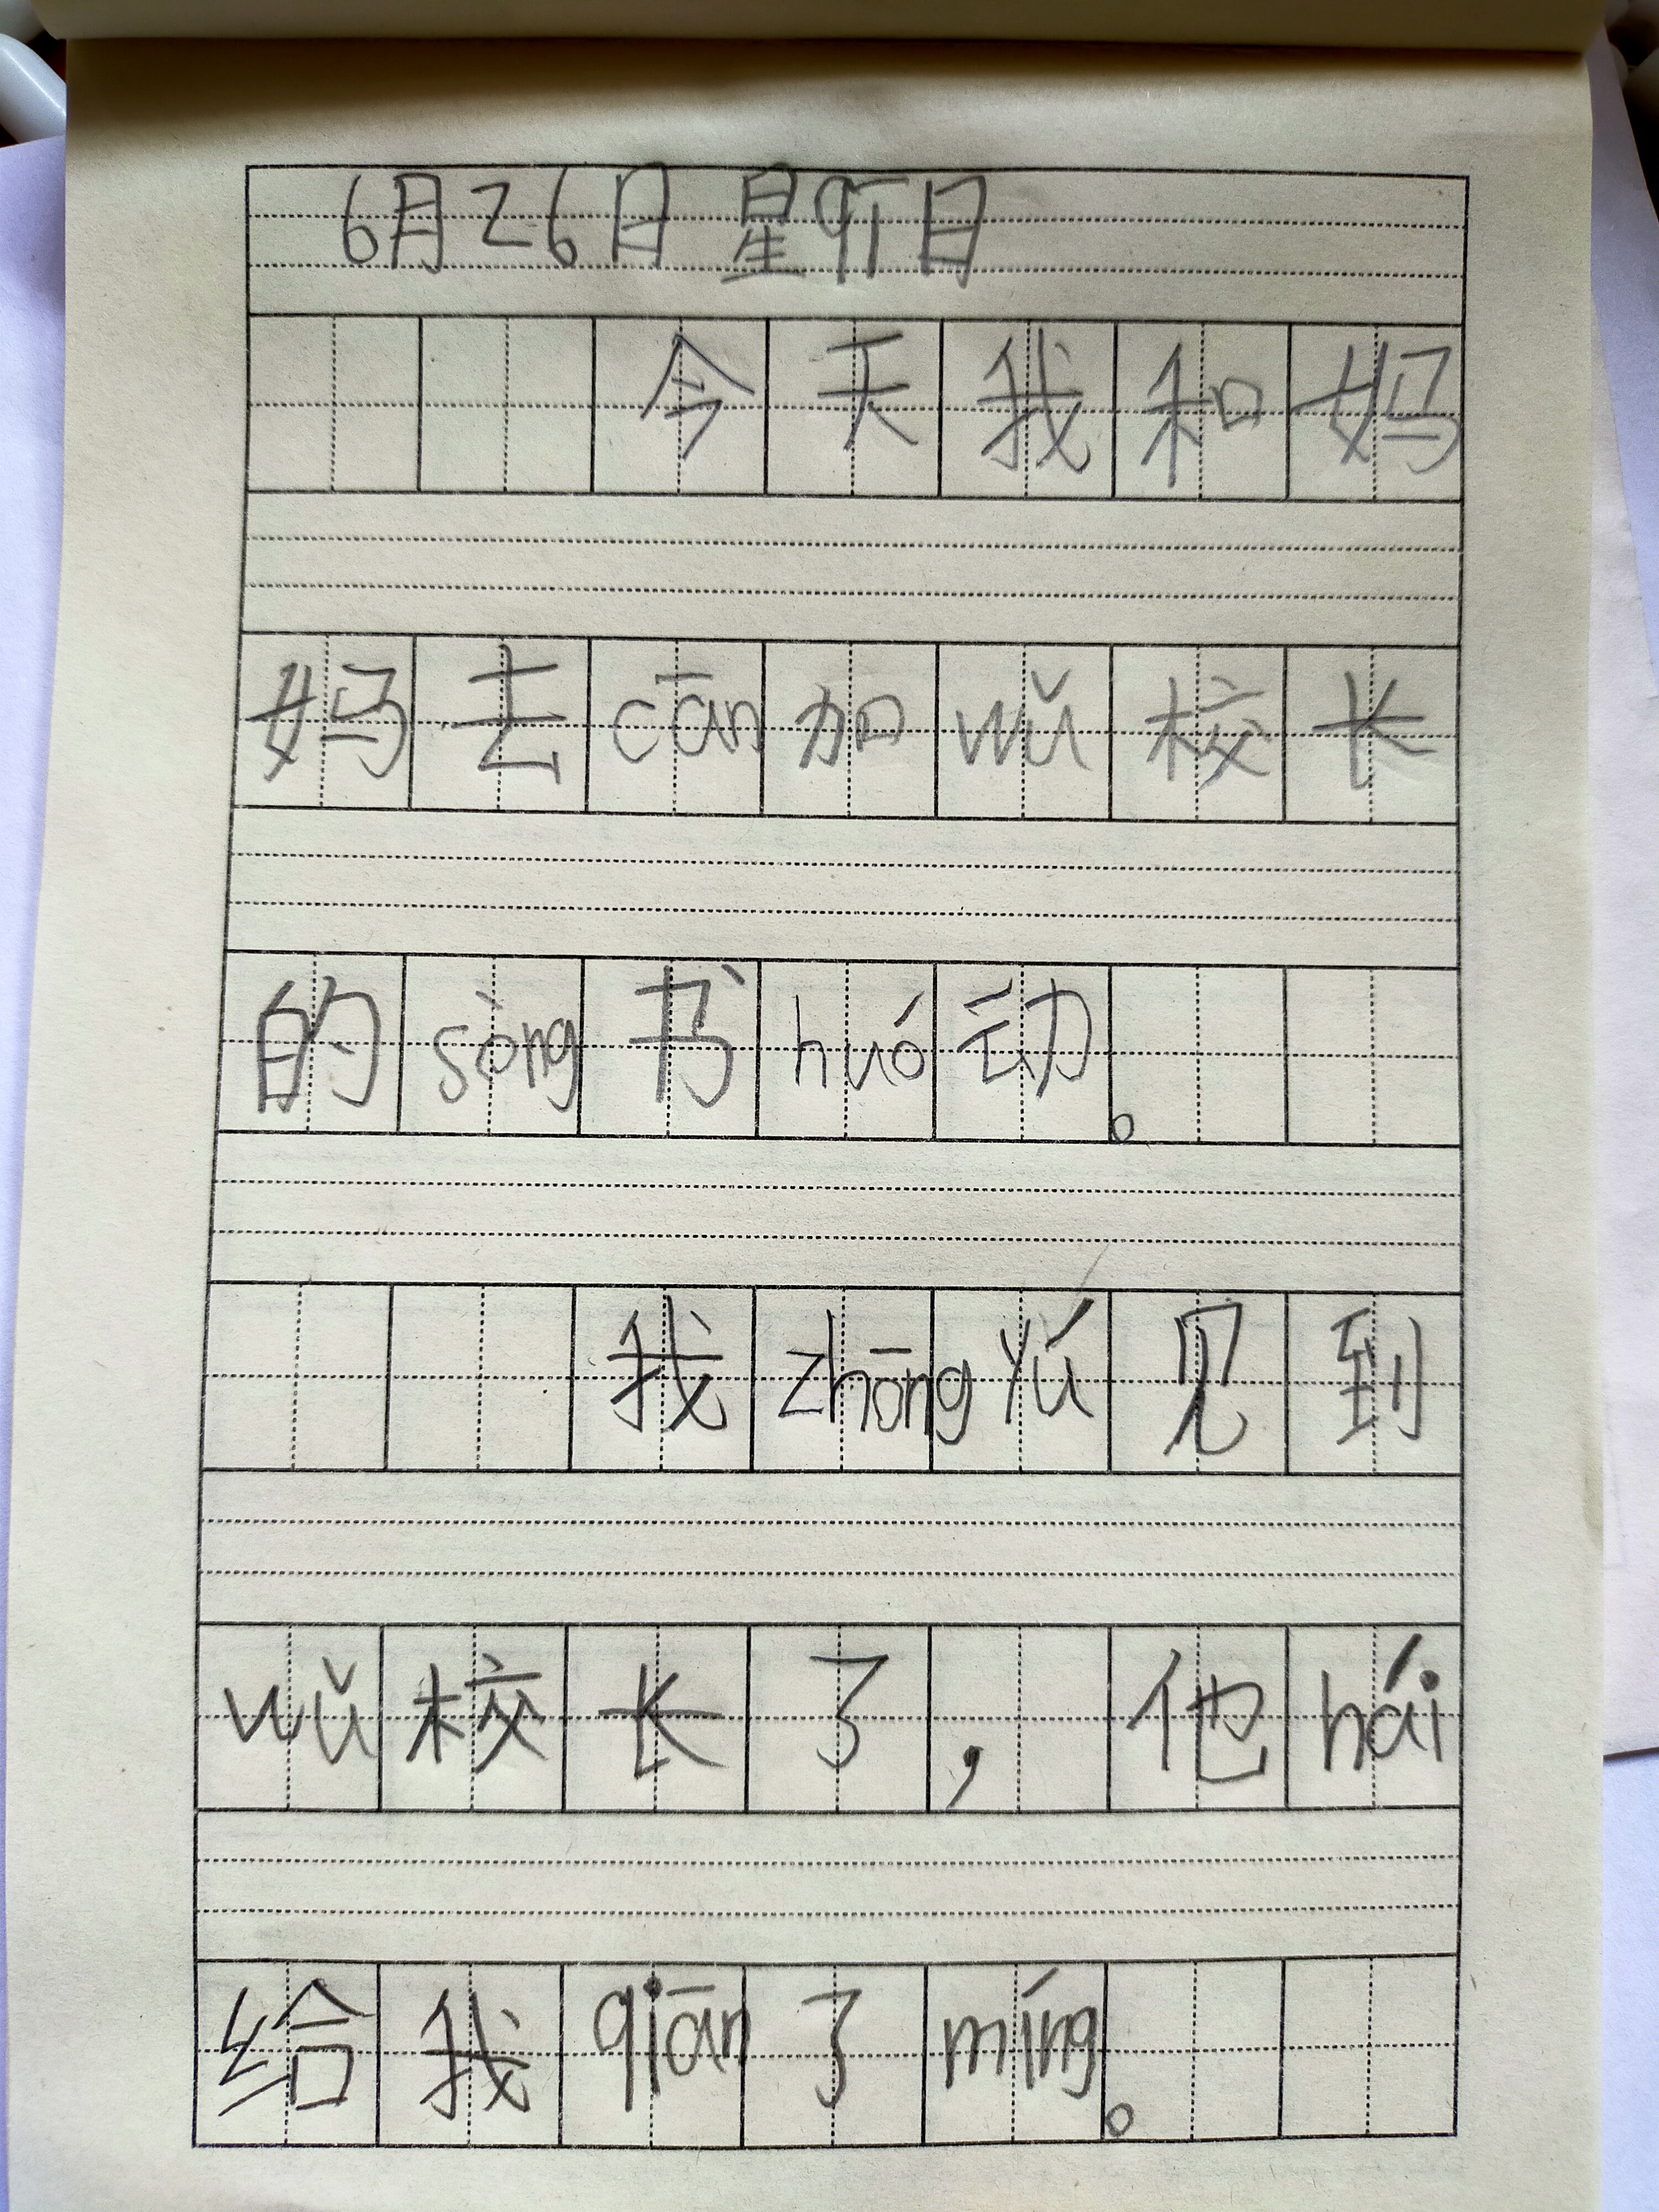 6月26日 星qī日
今天我和妈
妈去cān加wǔ校长
的sòng书huó动。
我zhōng yú见到
wǔ校长了，他hái
给我qiān了míng。